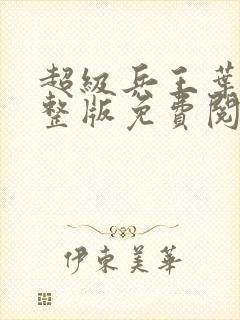 超级兵王葉
整版免費閱
伊東美華